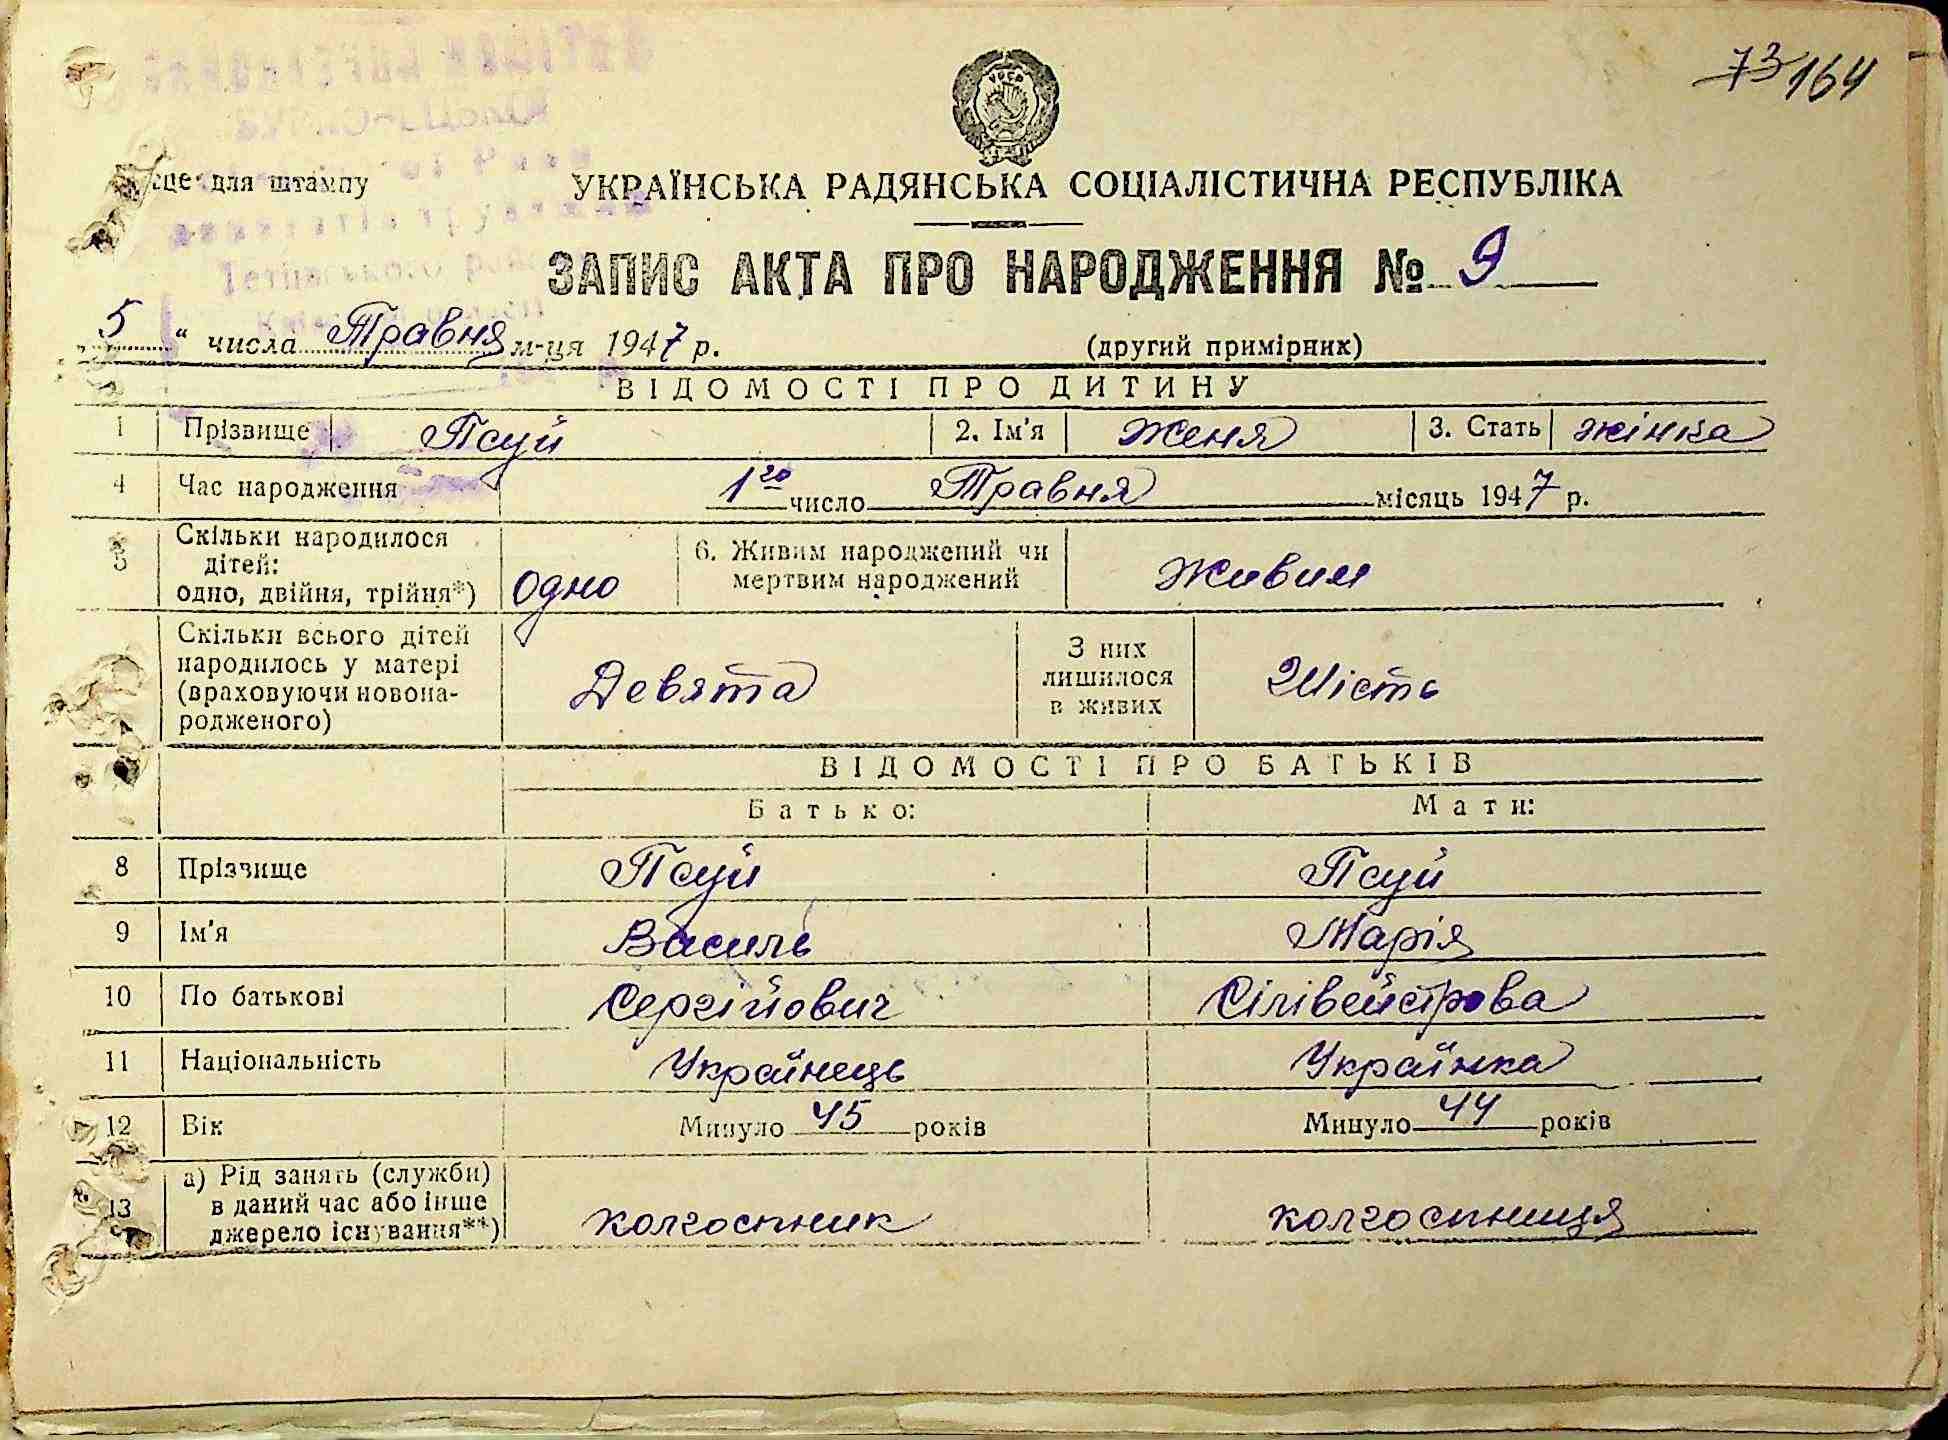 73 164
УРСР
це для штампу
УКРАЇНСЬКА РАДЯНСЬКА СОЦІАЛІСТИЧНА РЕСПУБЛІКА
ЗАПИС АКТА ПРО НАРОДЖЕННЯ № 9
„5“ числа Травня м-ця 1947 р. (другий примірник)
ВІДОМОСТІ ПРО ДИТИНУ
1 Прізвище Псуй 2. Ім'я Женя 3. Стать жінка
4 Час народження 1го число Травня місяць 1947 р.
5 Скільки народилося дітей: одно, двійня, трійня*) Одно 6. Живим народжений чи мертвим народжений Живим
Скільки всього дітей народилось у матері (враховуючи новона-родженого) Девята З них лишилося в живих Шість
ВІДОМОСТІ ПРО БАТЬКІВ
Батько: Мати:
8 Прізвище Псуй Псуй
9 Ім'я Василь Марія
10 По батькові Сергійович Сілівейстрова
11 Національність Українець Українка
12 Вік Минуло 45 років Минуло 44 років
13 а) Рід занять (служби) в даний час або інше джерело існування**) колгоспник колгоспниця